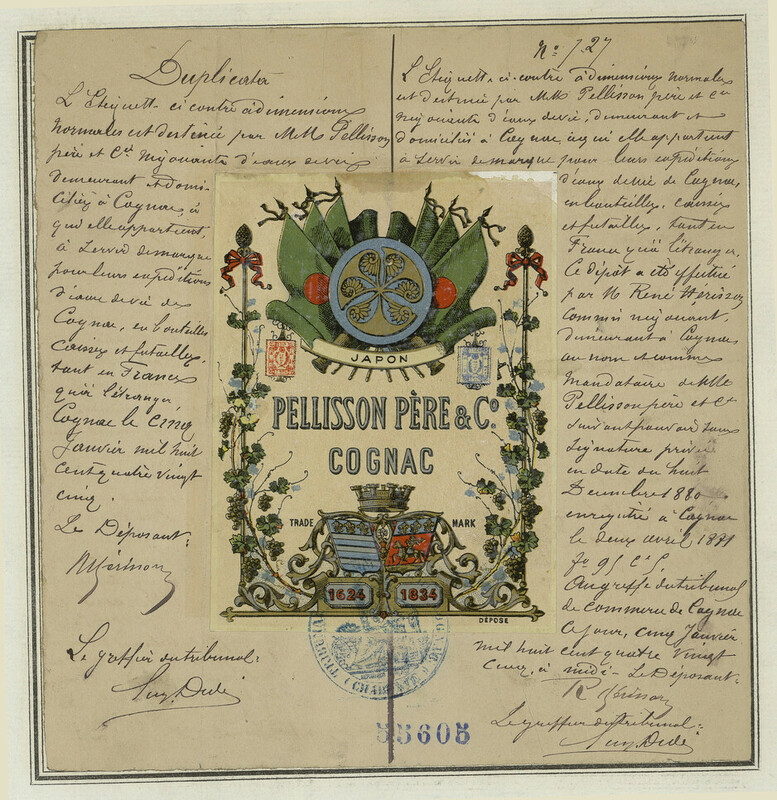 Duplicata
L'Etiquette ci contre à dimensions
normales est destinée par M.M. Pellisson
père et Cie négociants d'eaux de vie
demeurant et domi-
ciliés à Cognac, à
qui elle appartient,
à servir de marque
pour leurs expéditions
d'eaux de vie de
Cognac, en bouteilles
caisses et futailles,
tant en France
qu'à l'étranger
Cognac le cinq
Janvier mil huit
cent quatre vingt
cinq.
Le Déposant:
R Hérisson
Le greffier du tribunal:
No 727
L'Etiquette ci-contre à dimensions normales
est destinée par M.M. Pellisson père et Cie
négociants d'eaux de vie, demeurant et
domiciliés à Cognac à qui elle appartient
à servir de marque pour leurs expéditions
d'eaux de vie de Cognac,
en bouteilles, caisses
et futailles, tant en
France qu'à l'étranger,
Ce dépôt a été effectué
par M. René Hérisson
commis négociant,
demeurant à Cognac
au nom et comme
mandataire de MM.
Pellisson père et Cie
suivant pouvoir sous
signature privée
en date du huit
Décembre 1880
enregistré à Cognac
le deux avril 1881
fo 95 Ce 5.
Au greffe du tribunal
de commerce de Cognac
ce jour, cinq Janvier
mil huit cent quatre vingt
cinq, à midi - Le Déposant:
R Hérisson
Le greffier du tribunal:
JAPON
PELLISSON PÈRE & Co.
COGNAC
TRADE MARK
1624 1834
DÉPOSÉ
53605